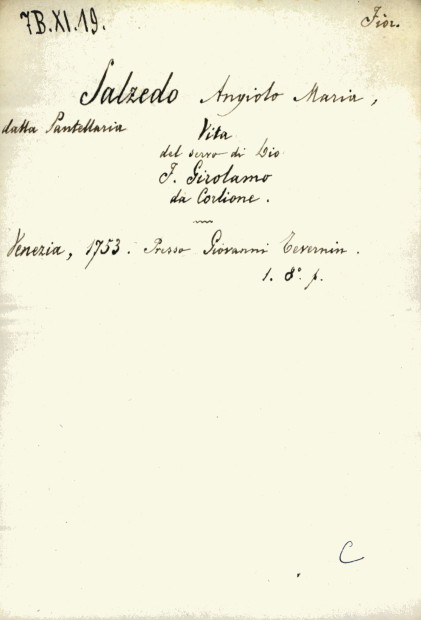 7B.XI.19. Fior.
Salzedo Angiolo Maria,
dalla Pantellaria Vita
del servo di Dio
F. Girolamo
da Corlione.
Venezia, 1753. Presso Giovanni Tevernin.
1. 8°. p.
C